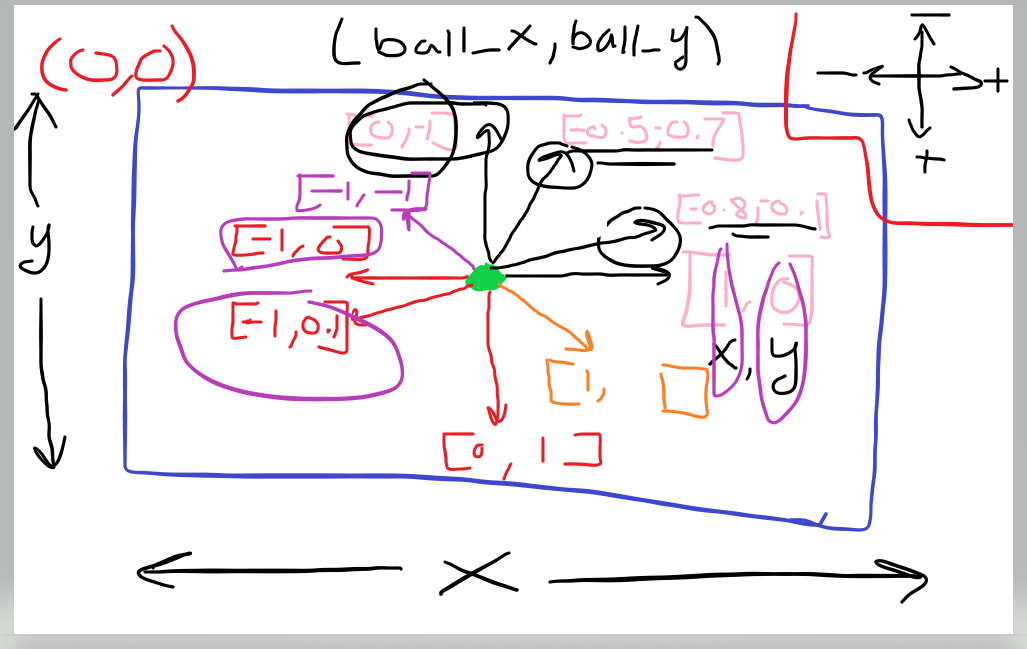 (ball_x, ball_y)
(0,0)
−
− +
+
[0,-1]
[-0.5,-0.7]
[-1,-1]
[-0.8,-0.1]
[-1, 0]
[1, 0]
[-1,0.1]
y
x, y
[1, ]
[0, 1]
X